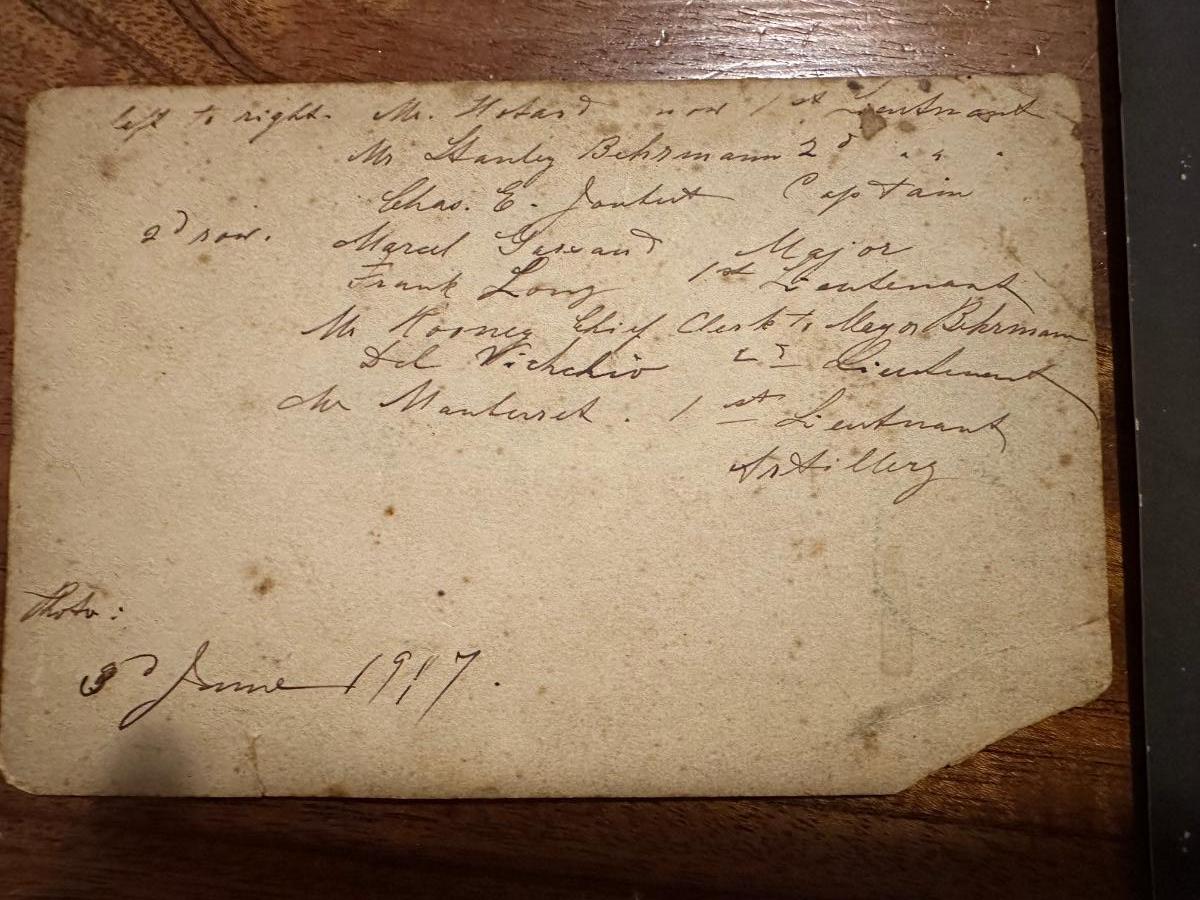 left to right. Mr. Hotard now 1st Lieutnant
Mr Stanley Behrmann 2d " " "
Chas. E. Joubert Captain
2d row. Marcel Garsaud Major
Frank Long 1st Lieutenant
Mr Rooney Chief Clerk to Mayor Behrmann
Del Vichchio 2d Lieutenant
Mr . 1st Lieutnant
Artillery
Photo:
3d June 1917.